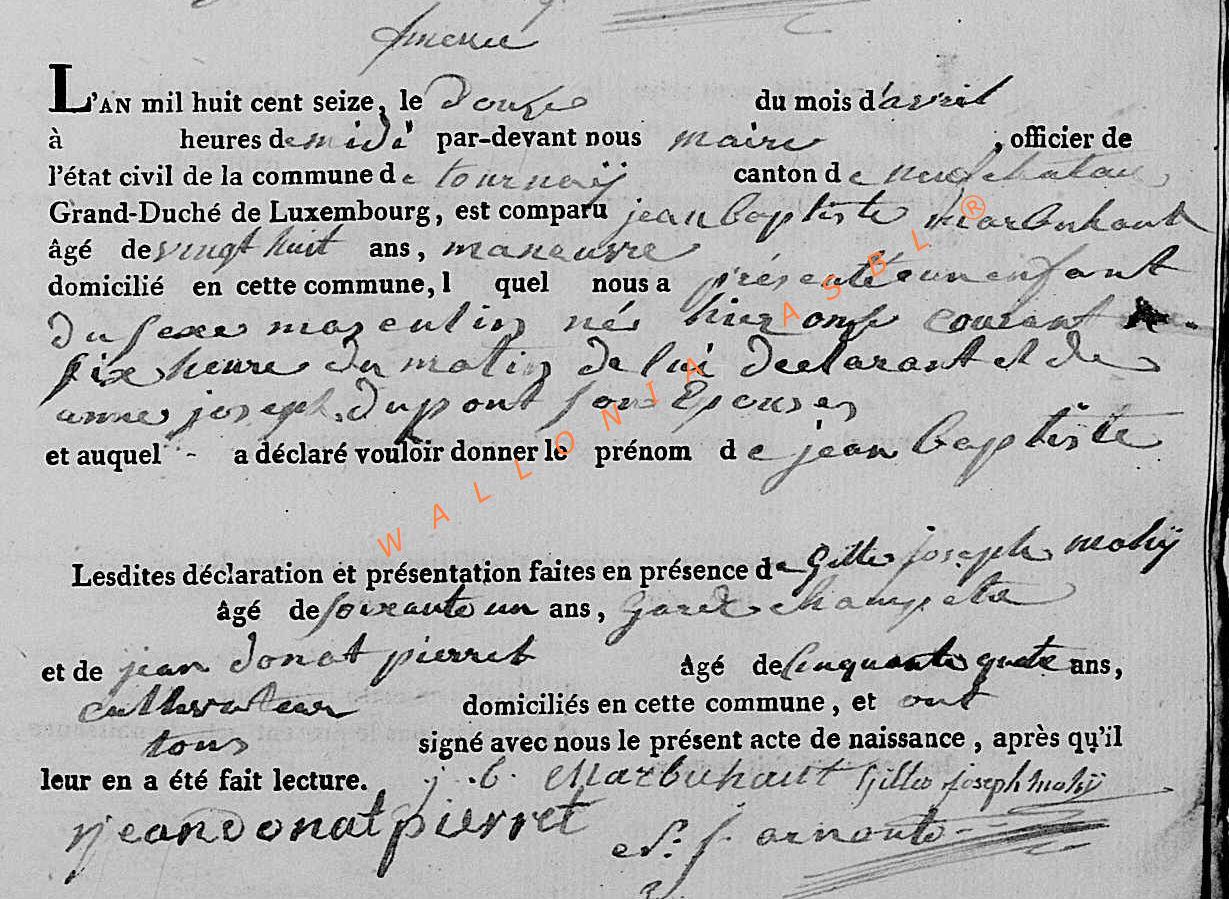 L'AN mil huit cent seize, le Douze du mois d'avril
à heures de midi par-devant nous maire , officier de
l'état civil de la commune de tournaÿ canton de neufchateau,
Grand-Duché de Luxembourg, est comparu jean Baptiste Marbuhant
âgé de vingt huit ans, maneuvre
domicilié en cette commune, l quel nous a présenté un enfant
du sexe masculin nés hier onze courant a
six heure du matin de lui declarant et de
anne joseph Dupont son Epouse
et auquel - a déclaré vouloir donner le prénom de jean Baptiste
WALLONIA ASBL®
Lesdites déclaration et présentation faites en présence de Gille joseph mohÿ
âgé de soixante un ans, Garde champete
et de jean Donat pierret âgé de cinquante quatre ans,
cultivateur domiciliés en cette commune, et ont
tous signé avec nous le présent acte de naissance, après qu'il
leur en a été fait lecture. j. b. Marbuhant Gilles joseph mohÿ
jean Donat pierret
arnould